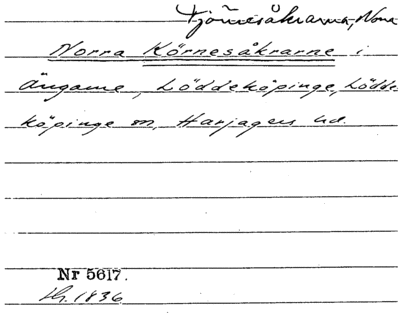 Tjörnesåkrarna, Norra
Norra Körnesåkrarne i
Ängarne, Löddeköpinge, Lödde-
köpinge sn, Harjagers hd.
Nr 5617.
Lh. 1836